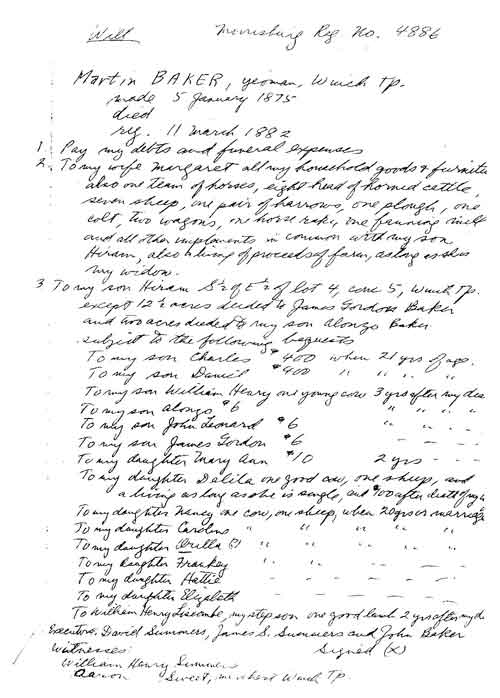 Will
Morrisburg Reg No. 4886
Martin BAKER, yeoman, Wmich Tp.
made 5 January 1875
died
reg. 11 March 1882
1. Pay my debts and funeral expenses
2. To my wife Margaret all my household goods & furniture
also one team of horses, eight head of horned cattle,
seven sheep, one pair of harrows, one plough, one
colt, two wagons, one horse rake, one fanning mill
and all other implements in common with my son
Hiram, also a living of proceeds of farm, as long as she is
my widow.
3 To my son Hiram S½ of E½ of lot 4, con 5, Wmich Tp.
except 12½ acres deeded to James Gordon Baker
and two acres deeded to my son Alonzo Baker
subject to the following bequests
To my son Charles $400 when 21 yrs of age.
To my son Daniel $400 " " " "
To my son William Henry one young cow 3 yrs after my
To my son Alonzo $6 " " "
To my son John Leonard $6 " - -
To my son James Gordon $6 - - -
To my daughter Mary Ann $10 2 yrs - -
To my daughter Delila one good cow, one sheep, and
a living as long as she is single, and after death of
To my daughter Nancy one cow, one sheep, when 20 yrs or marriage
To my daughter Caroline " " " " "
To my daughter Orilla (?) " " " "
To my daughter Frankey " " " "
To my daughter Hattie - - - -
To my daughter Elizabeth - - - -
To William Henry Liscombe, my step son one good lamb 2 yrs after my
Executors, David Summers, James S. Summers and John Baker
Witnesses: Signed (X)
William Henry Summers
Aaron Sweet, merchant Wmich Tp.